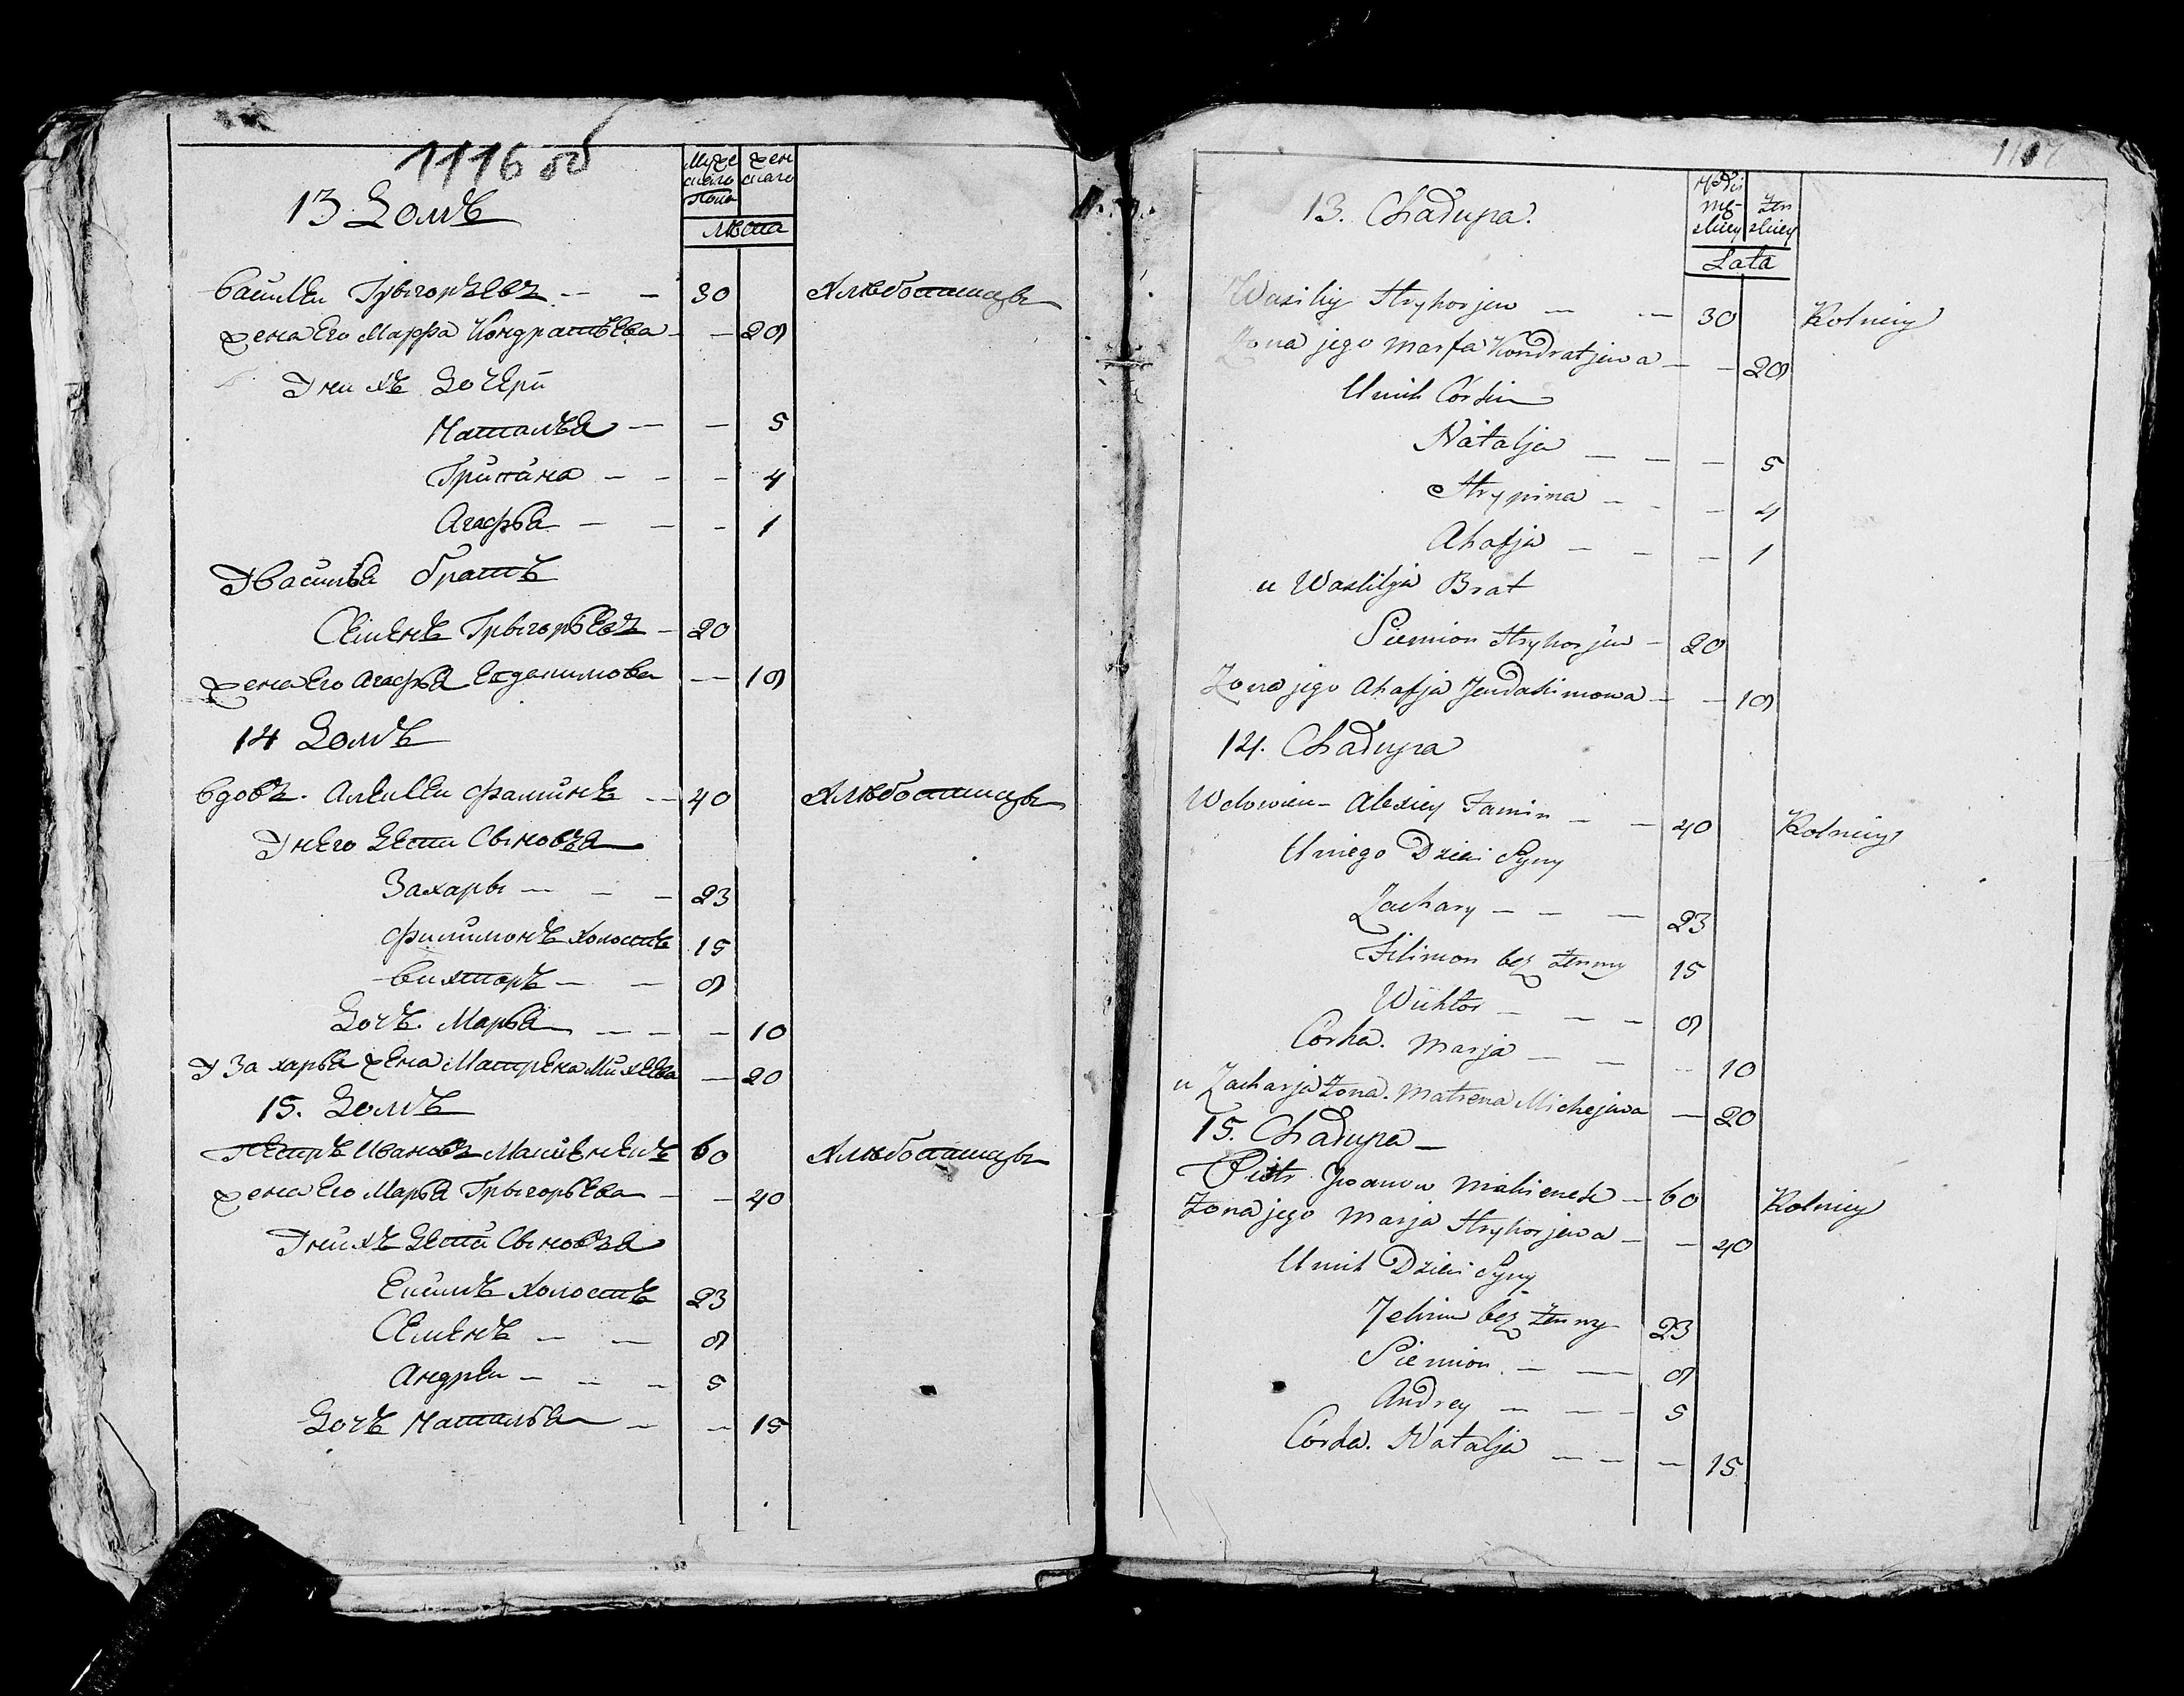 1116 об
13 Домъ
Мужескаго пола
Женскаго
Лѣта
Василеи Грыгорьевъ — — 30 Хлѣбопашцы
жена Его Марфа Кондратьева — — 29
У них дочери
Наталья — — 5
Грипина — — — 4
Агафья — — — 1
У Василья братъ
Семенъ Грыгорьевъ — 20
жена Его Агафья Евдакимова — 19
14 Домъ
вдовъ. Алексеи Фаминъ — 40 Хлѣбопашцы
У нЕго дети Сыновья
Захары — — — 23
Филимонъ холостъ 15
Вихторъ — — 9
Дочь. Марья — — — 10
У Захарья жена Матрена Михеева — 20
15. Домъ
Петръ Ивановъ 60 Хлѣбопашцы
жена Его Марья Грыгорьева — — 40
У нихъ дети Сыновья
холостъ 23
Семенъ — — 9
Андреи — — — 5
Дочь Наталья — — 15
1117
13. Chałupa.
Męskiey
Żenskiey
Lata
Wasiliy Hryhorjew — — 30 Rolniey
Żona jego Marfa Kondratjewa — — 29
U nich Córki
Natalja — — — 5
Hrypina — — — 4
Ahafja — — — 1
u Wasilija Brat
Siemion Hryhorjew — 20
Żona jego Ahafja Jewdakimowa — — 19
14. Chałupa
Wdowiec — Alexiey Famin — — 40 Rolniey
U niego Dzieci Syny
Zachary — — — 23
Filimon bez żenny 15
Wichtor — — — 9
Córka. Marja — — — 10
u Zacharja Żona. Matrena Michejewa — 20
15. Chałupa —
Piotr Iwanow — 60 Rolniey
Żona jego Marja Hryhorjewa — — 40
U nich Dzieci Syny
bez żenny 23
Siemion — — 9
Andrey — — — 5
Córka. Natalja — — — 15